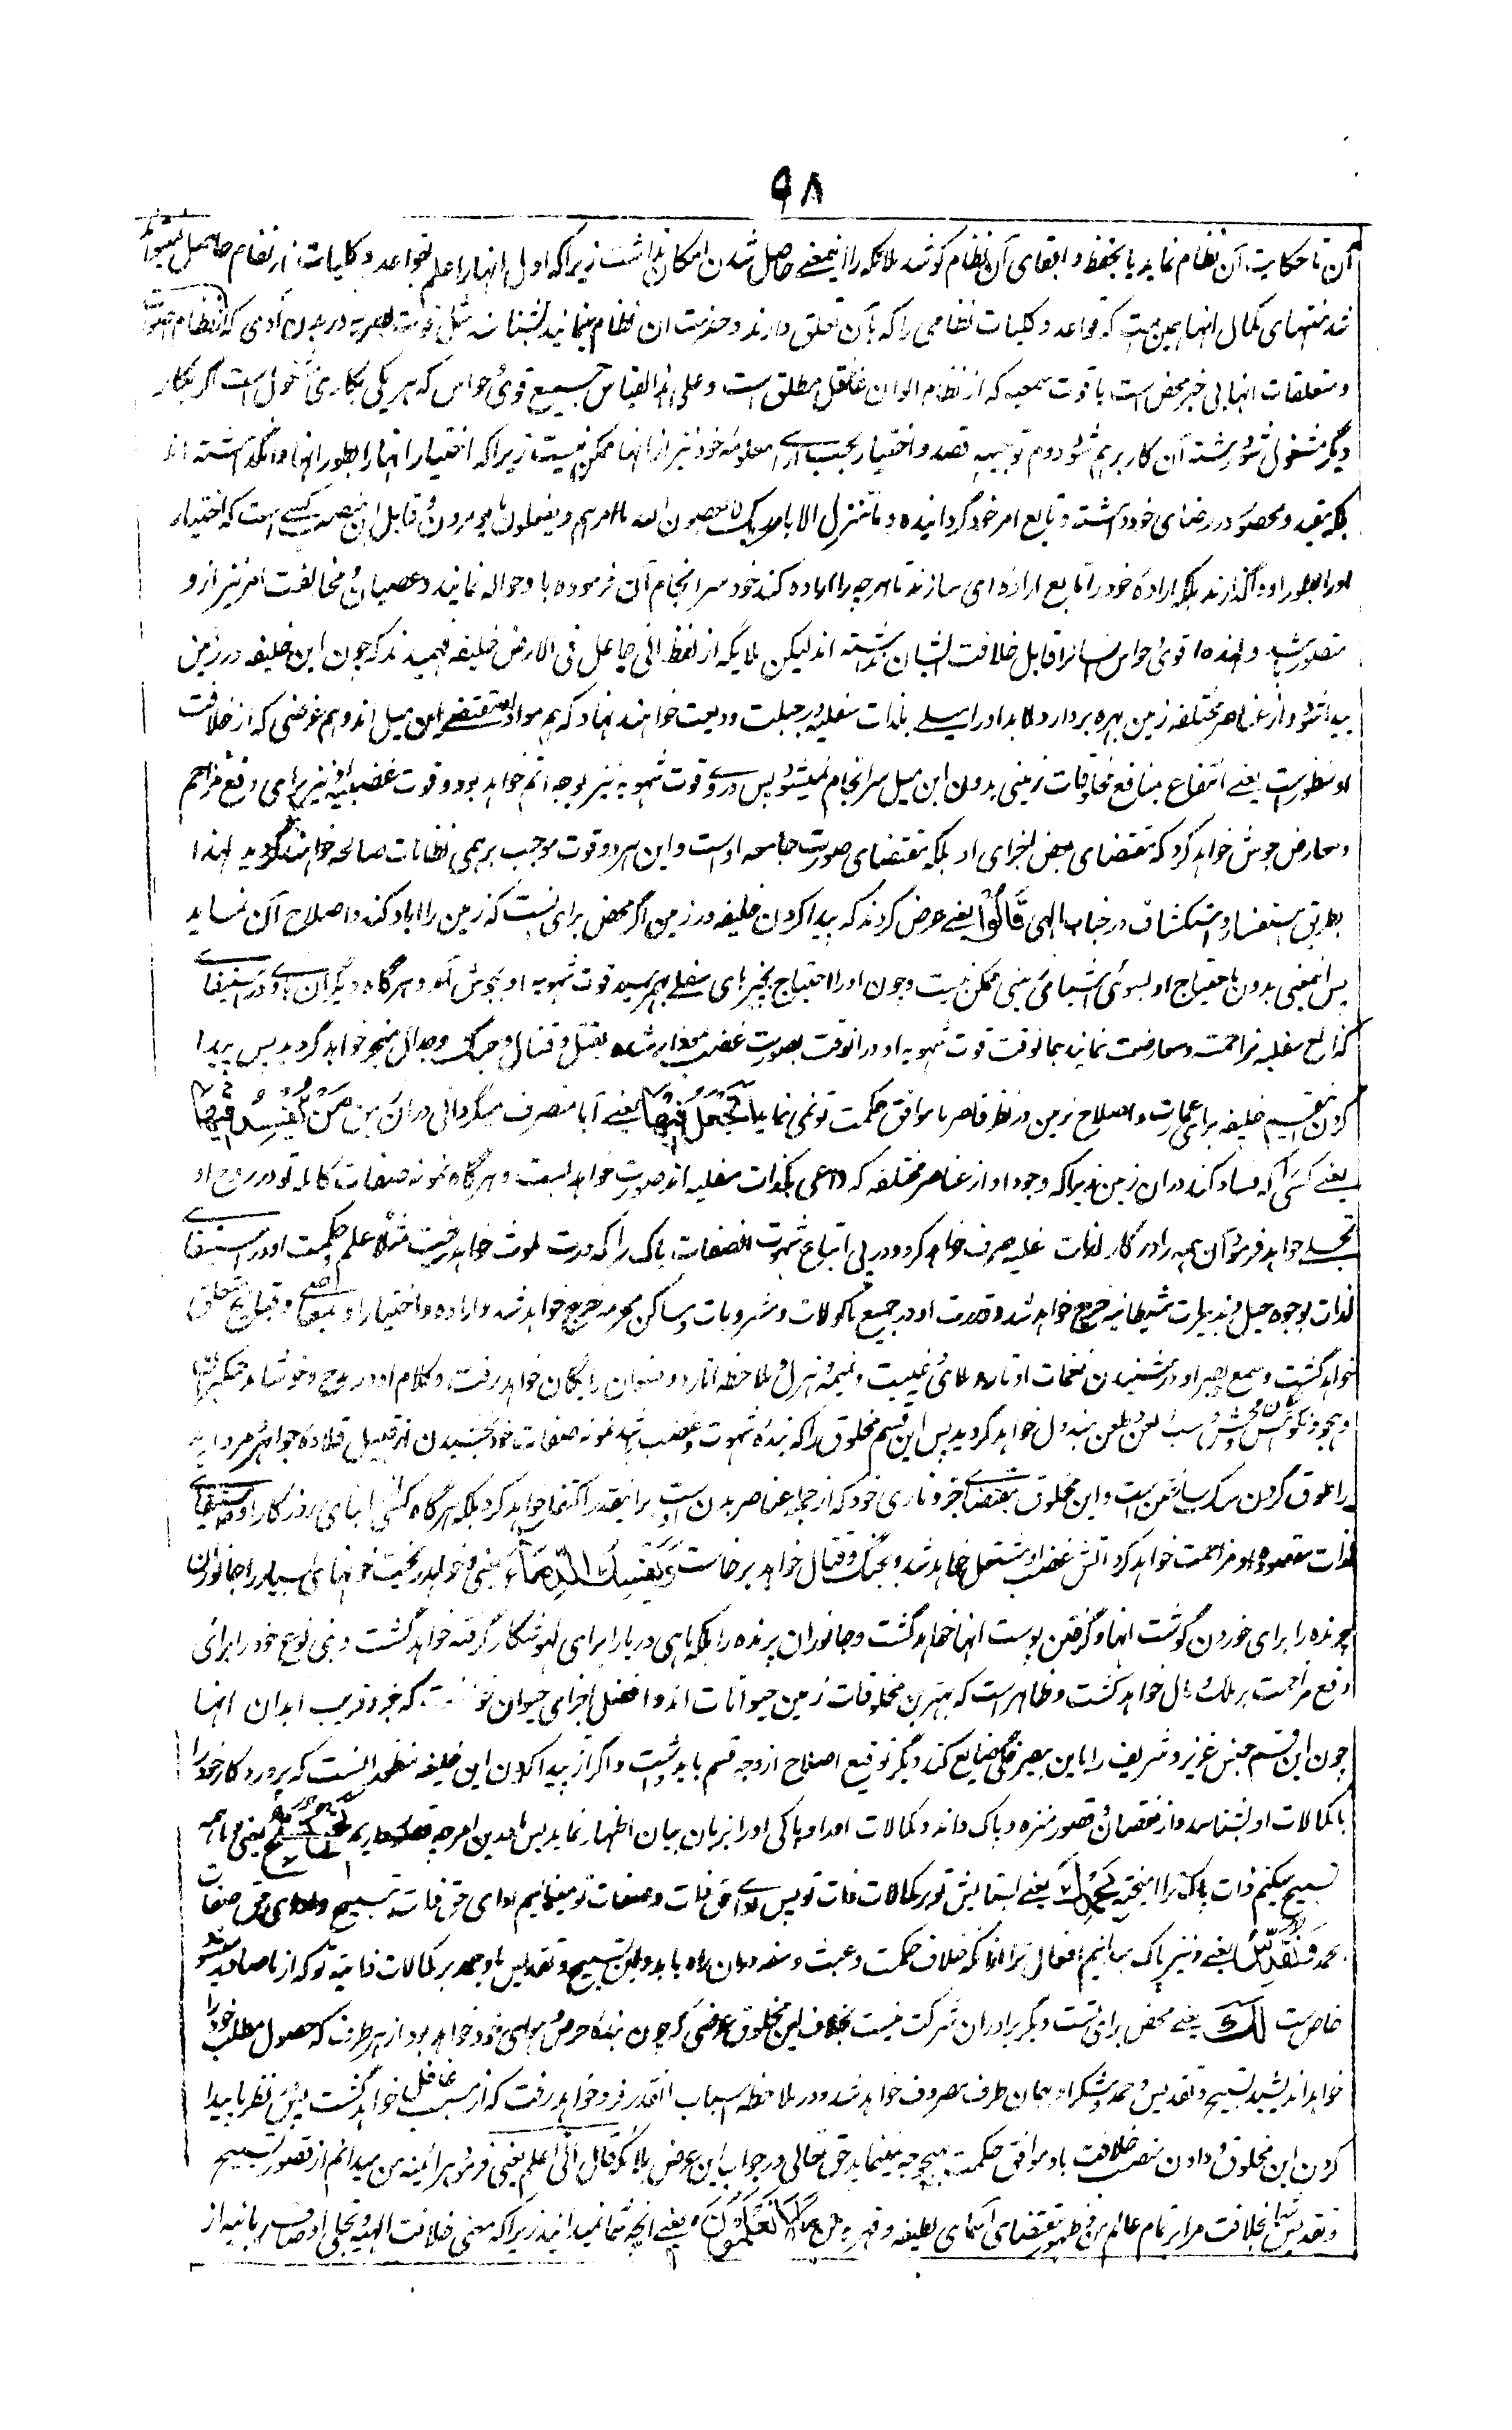 ٩٨
آن تا حکایت آن نظام نماید یا بحفظ و ابقای آن نظام کوشد ملائکه را اینمعنے حاصل شدن امکان نداشت زیرا که اول انها را علم بقواعد و کلیات از نظام حاصل نمیتواند
شد منتهای کمال انها همین است که قواعد و کلیات نظامی را که بآن تعلق دارند و خدمت آن نظام مینمایند بشناسند مثل قوت بصریه در بدن آدمی که از نظام اصوات
و متعلقات انها بی خبر محض است یا قوت سمعیه که از نظام الوان غافل مطلق است و علی هذا القیاس جمیع قوی و حواس که هر یکی بکاری مشغول است اگر بکار
دیگر مشغول شود رشته آن کار برهم شود دوم توجیه قصد و اختیار بحسب آرای معلومه خود نیز از انها ممکن نیست زیرا که اختیار انها را بطور انها وا نگذاشته اند
بلکه مقید و محصور در رضای خود داشته و تابع امر خود گردانیده و ما نتنزل الا بامر ربک لا یعصون الله ما امرهم و یفعلون ما یؤمرون و قابل این منصب کسے است که اختیار
او را بطور او وا گذارند بلکه اراده خود را تابع اراده ای سازند تا هر چه را اراده کند خود سرانجام آن فرموده باو حواله نمایند و عصیان و مخالفت امر نیز از و
متصور باشد و لهذا قوی و حواس انسانرا قابل خلافت ایشان ندانسته اند لیکن ملائکه از لفظ انی جاعل فی الارض خلیفه فهمیدند که چون این خلیفه در زمین
پیدا شود و از عناصر مختلفه زمین بهره بردارد لابد او را میلے بلذات سفلیه در جبلت ودیعت خواهند نهاد که هم مواد او مقتضے این میل اند و هم غرضی که از خلافت
او منظور است یعنے انتفاع بمنافع مخلوقات زمینی بدون این میل سرانجام نمیشود پس در وے قوت شهویه نیز بوجه اتم خواهد بود و قوت غضبیه او نیز برای دفع مزاحم
و معارض جوش خواهد کرد که مقتضای بعض اجزای او بلکه مقتضای صورت جامعه اوست و این هر دو قوت موجب برهمی نظامات صالحه خواهند گردید لهذا
بطریق استفسار و استکشاف در جناب الهی قَالُوْا یعنے عرض کردند که پیدا کردن خلیفه در زمین اگر محض برای نیست که زمین را آباد کند و اصلاح آن نماید
پس اینمعنی بدون احتیاج او بسوی اشیای زمینی ممکن نیست و چون او را احتیاج بچیزهای سفلے بهم رسید قوت شهویه او بجوش آمد و هر گاه دیگران با وے در استیفای
منافع سفلیه مزاحمت و معارضت نمایند همانوقت قوت شهویه او در انوقت بصورت غضب نمودار شده بقتل و قتال و جنگ و جدال منجر خواهد گردید پس پیدا
کردن این قسم خلیفه برای عمارت و اصلاح زمین در نظر قاصر ما موافق حکمت تو نمی نماید اَتَجْعَلُ فِیْهَا یعنے آیا متصرف میگردانی دران زمین مَنْ یُّفْسِدُ فِیْهَا
یعنے کسی را که فساد کند دران زمین زیرا که وجود او از عناصر مختلفه که داعی بلذات سفلیه اند صورت خواهد بست و هر گاه نمونه صفات کامله تو در روح او
تجلے خواهد فرمود آن همه را در کار لذات سفلیه صرف خواهد کرد و در پی اتباع شهوت انصفات پاک را کدورت ملوث خواهد ساخت مثلاً علم و حکمت او در استیفای
لذات بوجوه حیل و تدبیرات شیطانیه خرج خواهد شد و قدرت او در جمیع ماکولات و مشروبات و مساکن محرمه خرج خواهد شد و اراده و اختیار او بمعاصی و قبایح متعلق
خواهد گشت و سمع و بصر او در شنیدن نغمات اوتار و ملاهی و غیبت و نمیمه و هزل و ملاحظه امارد و نسوان رایگان خواهد رفت و کلام او در دروغ و خوشامد متکبران
و هجو نکوکیشان و فحش و سب و لعن و طعن مبذول خواهد گردید پس این قسم مخلوق را که بنده شهوت و غضب باشد نمونه صفات خود بخشیدن از قبیل قلاده جواهر و مروارید
را طوق گردن سگ ساختن است و این مخلوق بمقتضاے جزو ناری خود که از جمله عناصر بدن اوست بر اینقدر اکتفا نخواهد کرد بلکه هر گاه کسی از ابنای روزگار او در استیفاے
لذات مقصوده او مزاحمت خواهد کرد آتش غضب او مشتعل خواهد شد و بجنگ و قتال خواهد برخاست وَیَسْفِکُ الدِّمَآءَ یعنی و خواهد ریخت خونهای بسیار را جانوران
چرنده را برای خوردن گوشت انها و گرفتن پوست انها خواهد کشت و جانوران پرنده را بلکه ماهی دریا را برای لهو شکار گرفته خواهد کشت و بنی نوع خود را برای
دفع مزاحمت بر ملک و مال خواهد کشت و ظاهر است که بهترین مخلوقات زمین حیوانات اند و افضل اجزای حیوان خونست که جزو قریب ابدان انها
چون این قسم جنس عزیز و شریف را باین بیصرفگی ضایع کند دیگر توقع اصلاح از و چه قسم باید داشت و اگر از پیدا کردن این خلیفه منظور انست که پروردگار خود را
با کمالات او بشناسد و از نقصان و قصور منزه و پاک داند و کمالات او را و پاکی او را بزبان بیان اظهار نماید پس ما درین امر چه قصور داریم وَنَحْنُ نُسَبِّحُ یعنی و ما همه
تسبیح میکنیم ذات پاک ترا امیخته بِحَمْدِکَ یعنے بستایش تو بر کمالات ذات تو پس اداے حق ذات و صفات تو مینمائیم ادای حق ذات به تسبیح و ادای حق صفات
بحمد وَنُقَدِّسُ یعنے و نیز پاک میدانیم افعال ترا ازانکه خلاف حکمت و عبث و سفه دران راه یابد و این تسبیح و تقدیس ما و حمد بر کمالات ذاتیه تو که از ما صادر میشود
خاص است لَکَ یعنے محض برای تست دیگریرا دران شرکت نیست بخلاف این مخلوق عرضی که چون بنده حرص و هوای خود خواهد بود از هر طرف که حصول مطلب خود را
خواهد اندیشید تسبیح و تقدیس و حمد و شکر او بهمان طرف مصروف خواهد شد و در ملاحظه اسباب انقدر فرو خواهد رفت که از مسبب غافل خواهد گشت پس نظر ما پیدا
کردن این مخلوق و دادن منصب خلافت باو موافق حکمت بهیچوجه نمینماید حق تعالی در جواب این عرض ملائکه قال انی اعلم یعنی فرمود هر آئینه من میدانم از قصور تسبیح
و تقدیس شما بخلافت مرا بر تمام عالم من و ظهور مقتضای اسمای لطیفه و قهریه من مَا لَا تَعْلَمُوْنَ ه یعنے انچه شما نمیدانید زیرا که معنی خلافت الهیه و تجلی اوصاف ربانیه از